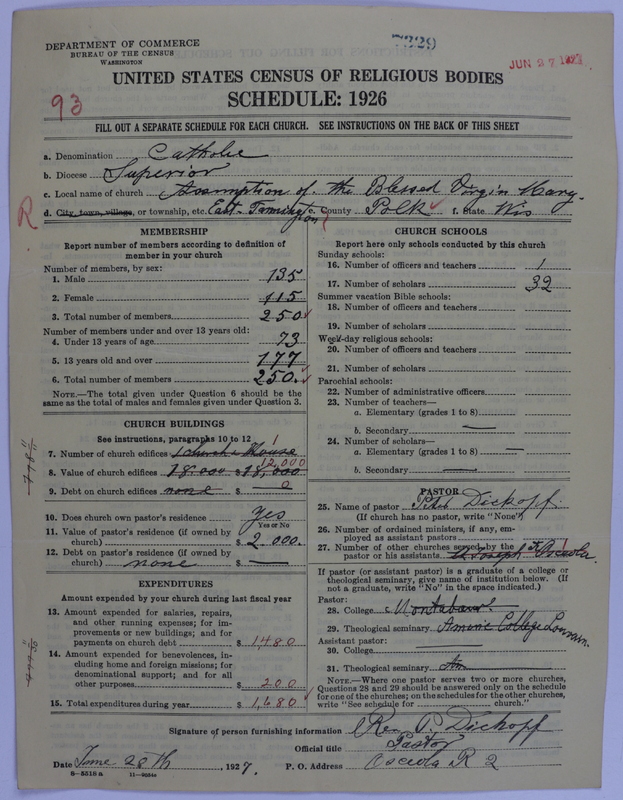 DEPARTMENT OF COMMERCE
BUREAU OF THE CENSUS
WASHINGTON
JUN 27 1927
UNITED STATES CENSUS OF RELIGIOUS BODIES
93
SCHEDULE: 1926
FILL OUT A SEPARATE SCHEDULE FOR EACH CHURCH. SEE INSTRUCTIONS ON THE BACK OF THIS SHEET
a. Denomination Catholic
b. Diocese Superior
c. Local name of church Assumption of the Blessed Virgin Mary.
R
d. City, town, village, or township, etc. East Farmington e. County Polk f. State Wis
MEMBERSHIP
Report number of members according to definition of
member in your church
Number of members, by sex:
1. Male 135
2. Female 115
3. Total number of members 250
Number of members under and over 13 years old:
4. Under 13 years of age 73
5. 13 years old and over 177
6. Total number of members 250
NOTE.—The total given under Question 6 should be
same as the total of males and females given under Question 3.
CHURCH BUILDINGS
See instructions, paragraphs 10 to 12
7. Number of church edifices 1 church & House 1
8. Value of church edifices 18,000 $ 18,000 12,000
9. Debt on church edifices none $ 0
10. Does church own pastor's residence Yes
Yes or No
11. Value of pastor's residence (if owned by
church) $ 2,000.
12. Debt on pastor's residence (if owned by
church) none $ —
EXPENDITURES
Amount expended by your church during last fiscal year
13. Amount expended for salaries, repairs,
and other running expenses; for im-
provements or new buildings; and for
payments on church debt $ 1480
14. Amount expended for benevolences, in-
cluding home and foreign missions; for
denominational support; and for all
other purposes $ 200
15. Total expenditures during year $ 1,680
CHURCH SCHOOLS
Report here only schools conducted by this church
Sunday schools:
16. Number of officers and teachers 1
17. Number of scholars 32
Summer vacation Bible schools:
18. Number of officers and teachers
19. Number of scholars
Week-day religious schools:
20. Number of officers and teachers
21. Number of scholars
Parochial schools:
22. Number of administrative officers
23. Number of teachers—
a. Elementary (grades 1 to 8) —
b. Secondary —
24. Number of scholars—
a. Elementary (grades 1 to 8) —
b. Secondary —
PASTOR
25. Name of pastor Peter Dickopf.
(If church has no pastor, write "None")
26. Number of ordained ministers, if any, em-
ployed as assistant pastors
27. Number of other churches served by the
pastor or his assistants St Joseph Osceola. 1
If pastor (or assistant pastor) is a graduate of a college or
theological seminary, give name of institution below. (If
not a graduate, write "No" in the space indicated.)
Pastor:
28. College Montabaur
29. Theological seminary Americ College Louvain.
Assistant pastor:
30. College —
31. Theological seminary
NOTE.—Where one pastor serves two or more churches,
Questions 28 and 29 should be answered only on the schedule
for one of the churches; on the schedules for the other churches,
write "See schedule for church."
Signature of person furnishing information Rev. P. Dickopf
Official title Pastor
Date June 25th, 1927. P. O. Address Osceola R 2
8—5518 a 11—9054